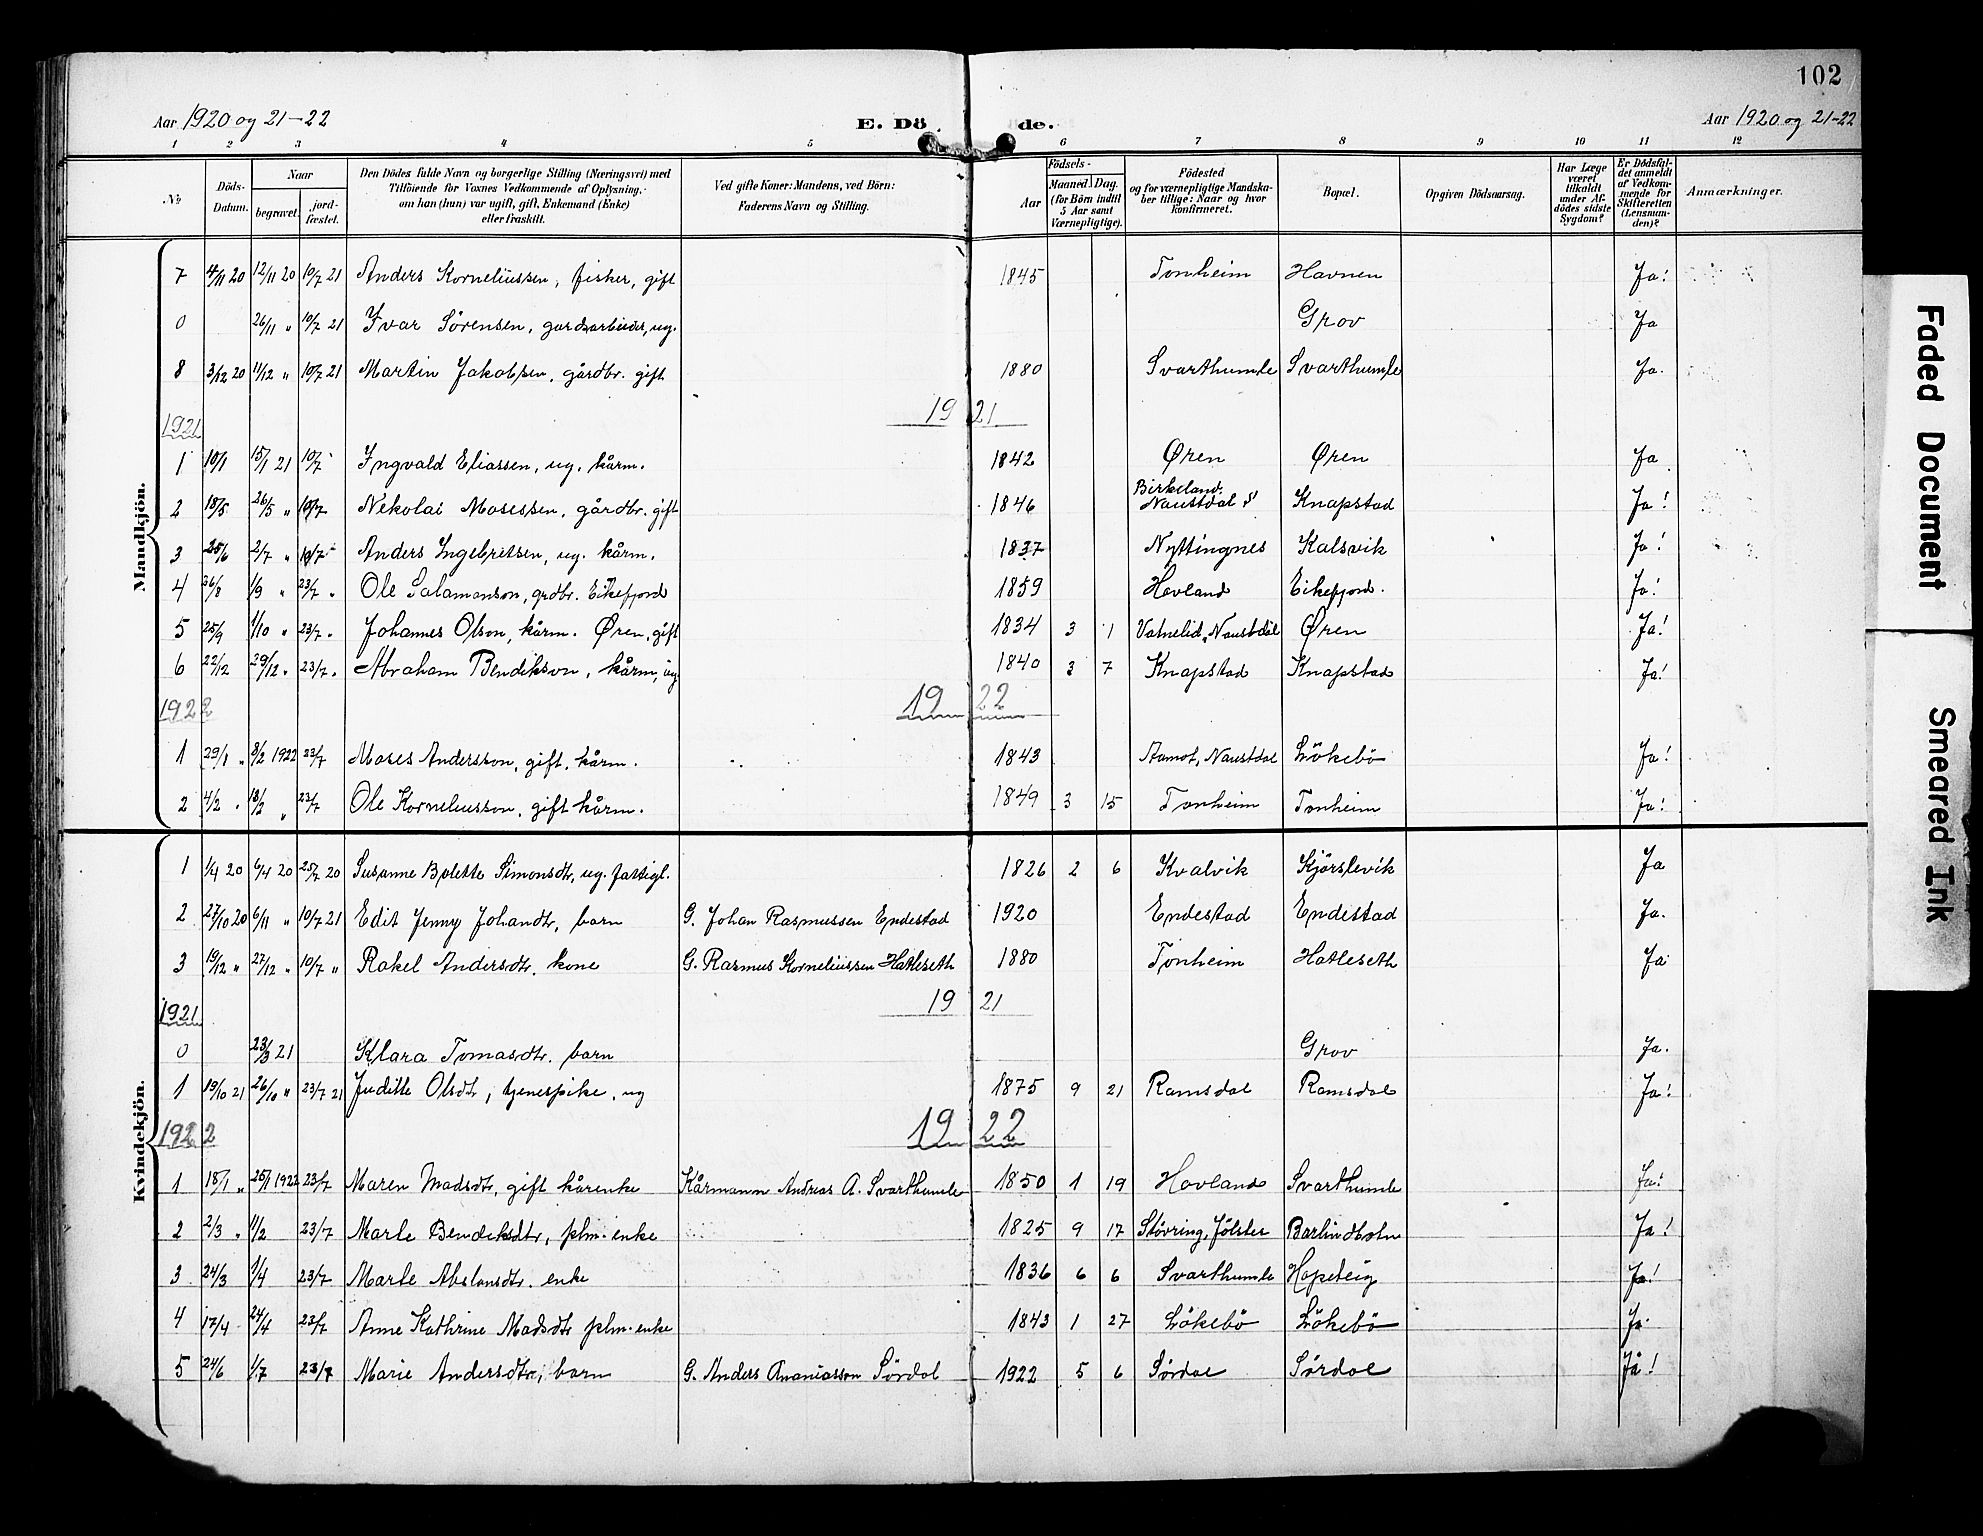 102
Aar 1920 og 21-22 E. Dö de. Aar 1920 og 21-22
1 2 3 4 5 6 7 8 9 10 11 12
No
Döds-Datum.
Naar
begravet.
jord-fæstet.
Den Dödes fulde Navn og borgerlige Stilling (Næringsvei) med
Tilföiende for Voxnes Vedkommende af Oplysning,
om han (hun) var ugift, gift, Enkemand (Enke)
eller fraskilt.
Ved gifte Koner: Mandens, ved Börn:
Faderens Navn og Stilling.
Födsels-
Aar
Maaned. Dag.
(for Börn indtil
5 Aar samt
Værnepligtige).
Födested
og for værnepligtige Mandska-
ber tillige: Naar og hvor
konfirmeret.
Bopæl.
Opgiven Dödsaarsag.
Har Læge
været
tilkaldt
under Af-
dödes sidste
Sygdom?
Er Dödsfal-
det anmeldt
af Vedkom-
mende for
Skifteretten
(Lensman-
den)?
Anmærkninger.
Mandkjön.
7 4/11 20 12/11 20 10/7 21 Anders Korneliussen, fisker, gift 1845 Tonheim Havnen Ja!
0 26/11 " 10/7 21 Ivar Sörensen, gardsarbeider, ug. Grov Ja
8 3/12 20 11/12 " 10/7 21 Martin Jakobsen, gårdbr. gift 1880 Svarthumle Svarthumle Ja.
1921 19 21
1 10/1 15/1 21 10/7 Ingvald Eliassen, ug. kårm. 1842 Øren Øren Ja
2 18/5 26/5 " 10/7 Nekolai Mosessen, gårdbr. gift 1846 Birkeland, Naustdal s! Knapstad Ja!
3 25/6 2/7 " 10/7 Anders Ingebretsen, ug. kårm. 1837 Nyttingnes Kalsvik Ja!
4 26/8 1/9 " 23/7 " Ole Salamonson, grdbr. Eikefjord 1859 Hovland Eikefjord. Ja!
5 25/9 1/10 " 23/7 " Johannes Olson, kårm. Øren, gift 1834 3 1 Vatnelid, Naustdal Øren Ja!
6 22/12 29/12 " 23/7 " Abraham Bendikson, kårm, ug 1840 3 7 Knapstad Knapstad Ja!
1922 19 22
1 29/1 " 8/2 1922 23/7 Moses Andersson, gift, kårm. 1843 Aamot, Naustdal Lökebö Ja!
2 4/2 " 18/2 " 23/7 Ole Korneliusson, gift kårm. 1849 3 15 Tonheim Tonheim Ja!
Kvindekjön.
1 1/4 20 6/4 20 25/7 20 Susanne Bolette Simonsdtr, ug. fattigl. 1826 2 6 Kvalvik Kjörslevik Ja
2 27/10 20 6/11 " 10/7 21 Edit Jenny Johandtr, barn G. Johan Rasmussen Endestad 1920 Endestad Endestad Ja.
3 19/12 " 27/12 " 10/7 " Rakel Andersdtr. kone G. Rasmus Korneliussen Hatleseth 1880 Tonheim Hatleseth Ja
1921 19 21
0 23/3 21 Klara Tomasdtr. barn Grov Ja.
1 19/10 21 26/10 " 23/7 21 Juditte Olsdtr, tjenespike, ug 1875 9 21 Ramsdal Ramsdal Ja!
1922 19 22
1 18/1 " 25/1 1922 23/7 Maren Madsdtr, gift kårenke Kårmann Andreas A. Svarthumle 1850 1 19 Hovland Svarthumle Ja!
2 2/3 " 11/2 23/7 Marte Bendeksdtr, plm. enke 1825 9 17 Stövring, Jölster Barlindbotn Ja!
3 24/3 1/4 23/7 Marte Abslonsdtr. enke 1836 6 6 Svarthumle Hopeteig Ja!
4 17/4 24/4 23/7 Anne Kathrine Madsdtr plm. enke 1843 1 27 Lökebö Lökebö Ja.
5 24/6 1/7 23/7 Marie Andersdtr, barn G. Anders Ananiasson Sördal 1922 5 6 Sördal Sördal Ja!
Faded Document
Smeared Ink